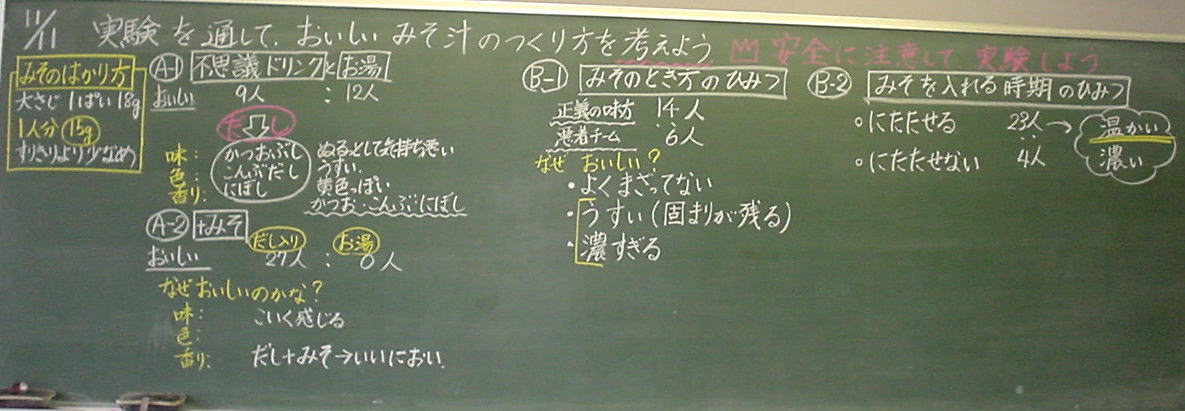 11/11 実験を通して、おいしいみそ汁のつくり方を考えよう 安全に注意して実験しよう
みそのはかり方
大さじ1ぱい18g
1人分 15g
すりきりより少なめ
A-1 不思議ドリンクとお湯
おいしい 9人 : 12人
だし
味:
色:
香り:
かつおぶし
こんぶだし
にぼし
ぬるっとして気持ち悪い
うすい
黄色っぽい
かつお・こんぶ・にぼし
A-2 +みそ
だし入り お湯
おいしい 27人 : 0人
なぜおいしいのかな?
味: こいく感じる
色:
香り: だし+みそ→いいにおい
B-1 みそのとき方のひみつ
正義の味方 14人
悪者チーム 6人
なぜ おいしい?
・よくまざってない
・うすい(固まりが残る)
・濃すぎる
B-2 みそを入れる時期のひみつ
○にたたせる 23人→
○にたたせない 4人
温かい
濃い